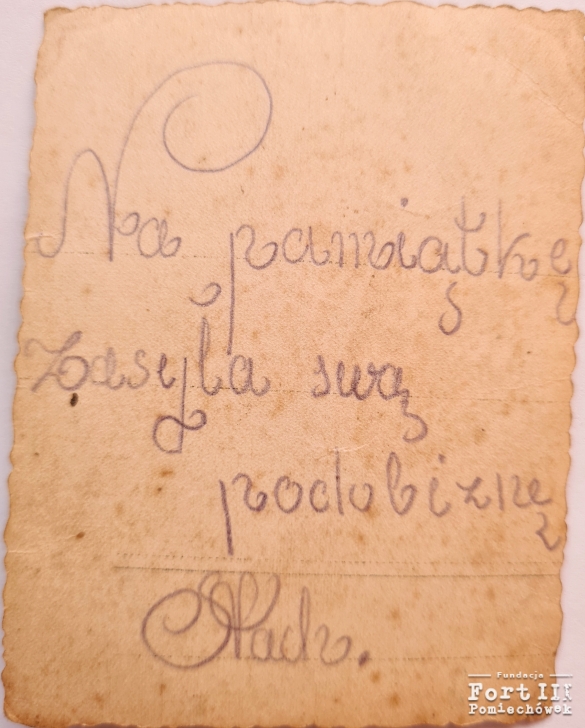 Na pamiątkę
zasyła swą
podobiznę
Fundacja
Fort III
Pomiechówek